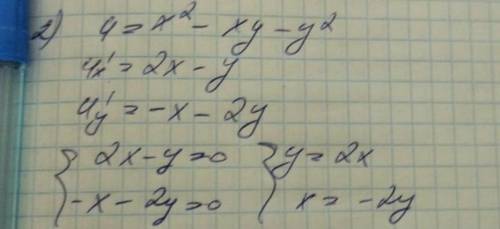 2) u = x² - xy - y²
u'x = 2x - y
u'y = -x - 2y
{ 2x - y = 0 { y = 2x
{ -x - 2y = 0 { x = -2y